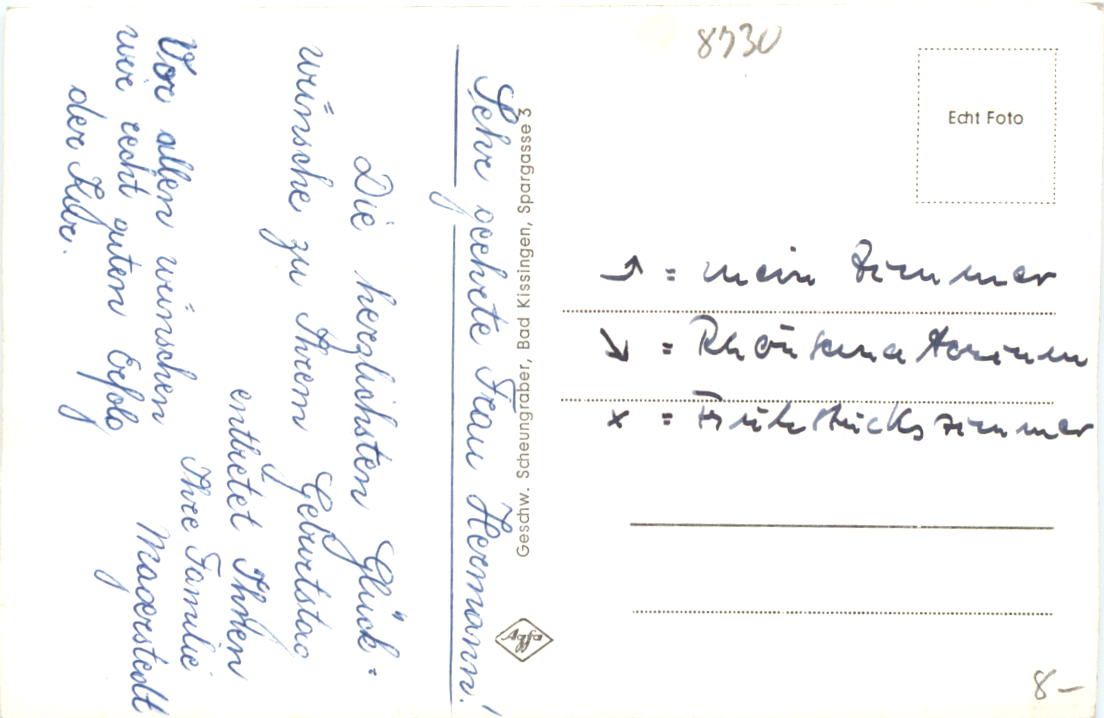 Sehr geehrte Frau Hermann!
Die herzlichsten Glück=
wünsche zu Ihrem Geburtstag
entbietet Ihnen
Ihre Familie
Magerstedt
Vor allen wünschen
wir recht guten Erfolg
der Kur.
Geschw. Scheungraber, Bad Kissingen, Spargasse 3
Agfa
8730
Echt Foto
↗ = mein Zimmer
↘ = Rhönsanatorium
x = Frühstückszimmer
8–